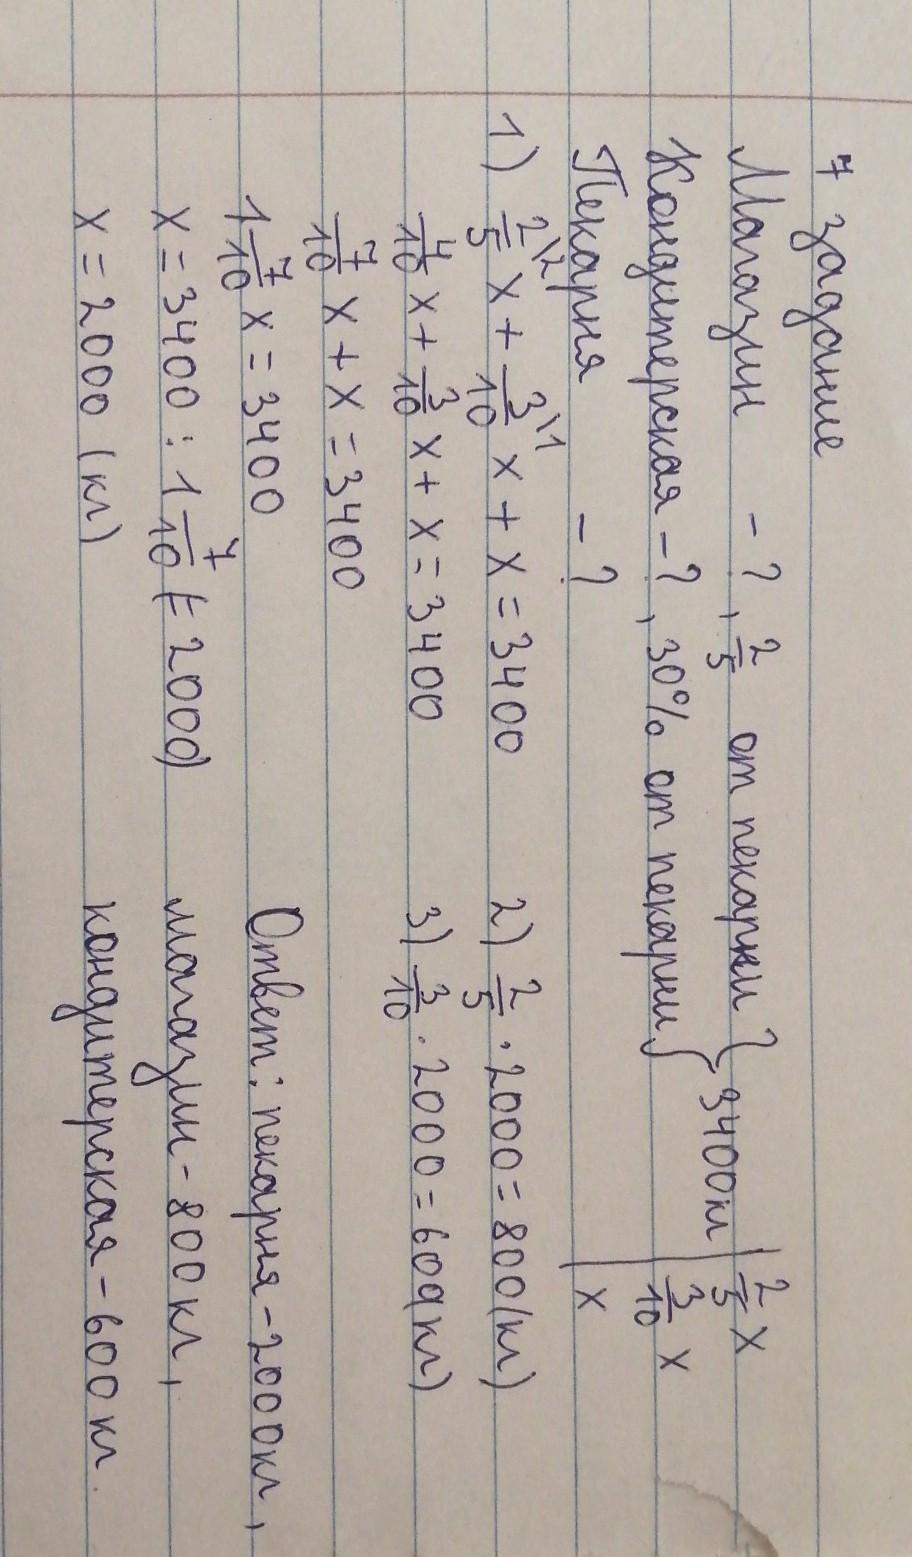 7 задание
Магазин - ?, 2/5 от пекарни } 3400кг | 2/5 x
Кондитерская - ?, 30% от пекарни } | 3/10 x
Пекарня - ? | x
1) 2/5\2 x + 3/10\1 x + x = 3400
4/10 x + 3/10 x + x = 3400
7/10 x + x = 3400
1 7/10 x = 3400
x = 3400 : 1 7/10 (= 2000)
x = 2000 (кг)
2) 2/5 · 2000 = 800 (кг)
3) 3/10 · 2000 = 600 (кг)
Ответ: пекарня - 2000кг,
магазин - 800кг,
кондитерская - 600 кг.